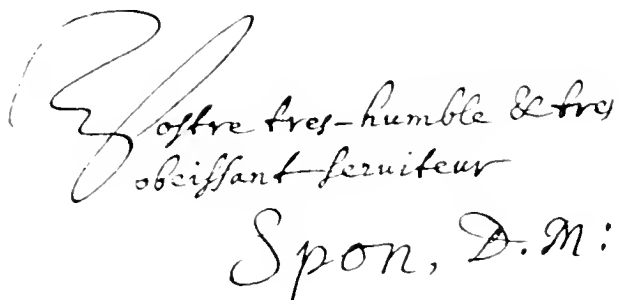 Vostre tres-humble & tres
obeissant seruiteur
Spon, D. M: